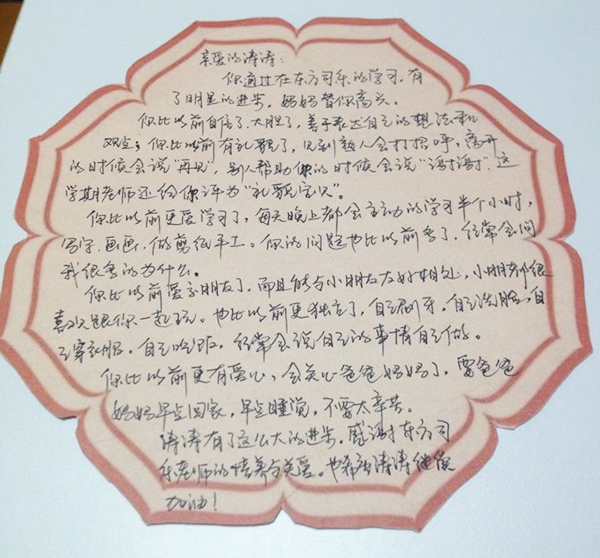 亲爱的涛涛：
你通过在东方司乐的学习，有
了明显的进步，妈妈替你高兴。
你比以前自信了，大胆了，善于表达自己的想法和
观点；你比以前有礼貌了，见到熟人会打招呼，离开
的时候会说“再见”，别人帮助你的时候会说“谢谢”。这
学期老师还给你评为“礼貌宝贝”。
你比以前更爱学习了，每天晚上都会主动的学习半个小时，
写字、画画、做剪纸手工。你的问题也比以前多了，经常会问
我很多的为什么。
你比以前爱交朋友了，而且能与小朋友友好相处，小朋友都很
喜欢跟你一起玩。也比以前更独立了，自己刷牙，自己洗脸，自
己穿衣服，自己吃饭，经常会说自己的事情自己做。
你比以前更有爱心，会关心爸爸妈妈了，要爸爸
妈妈早点回家，早点睡觉，不要太辛苦。
涛涛有了这么大的进步，感谢东方司
乐老师的培养与关爱。也希望涛涛继续
加油！